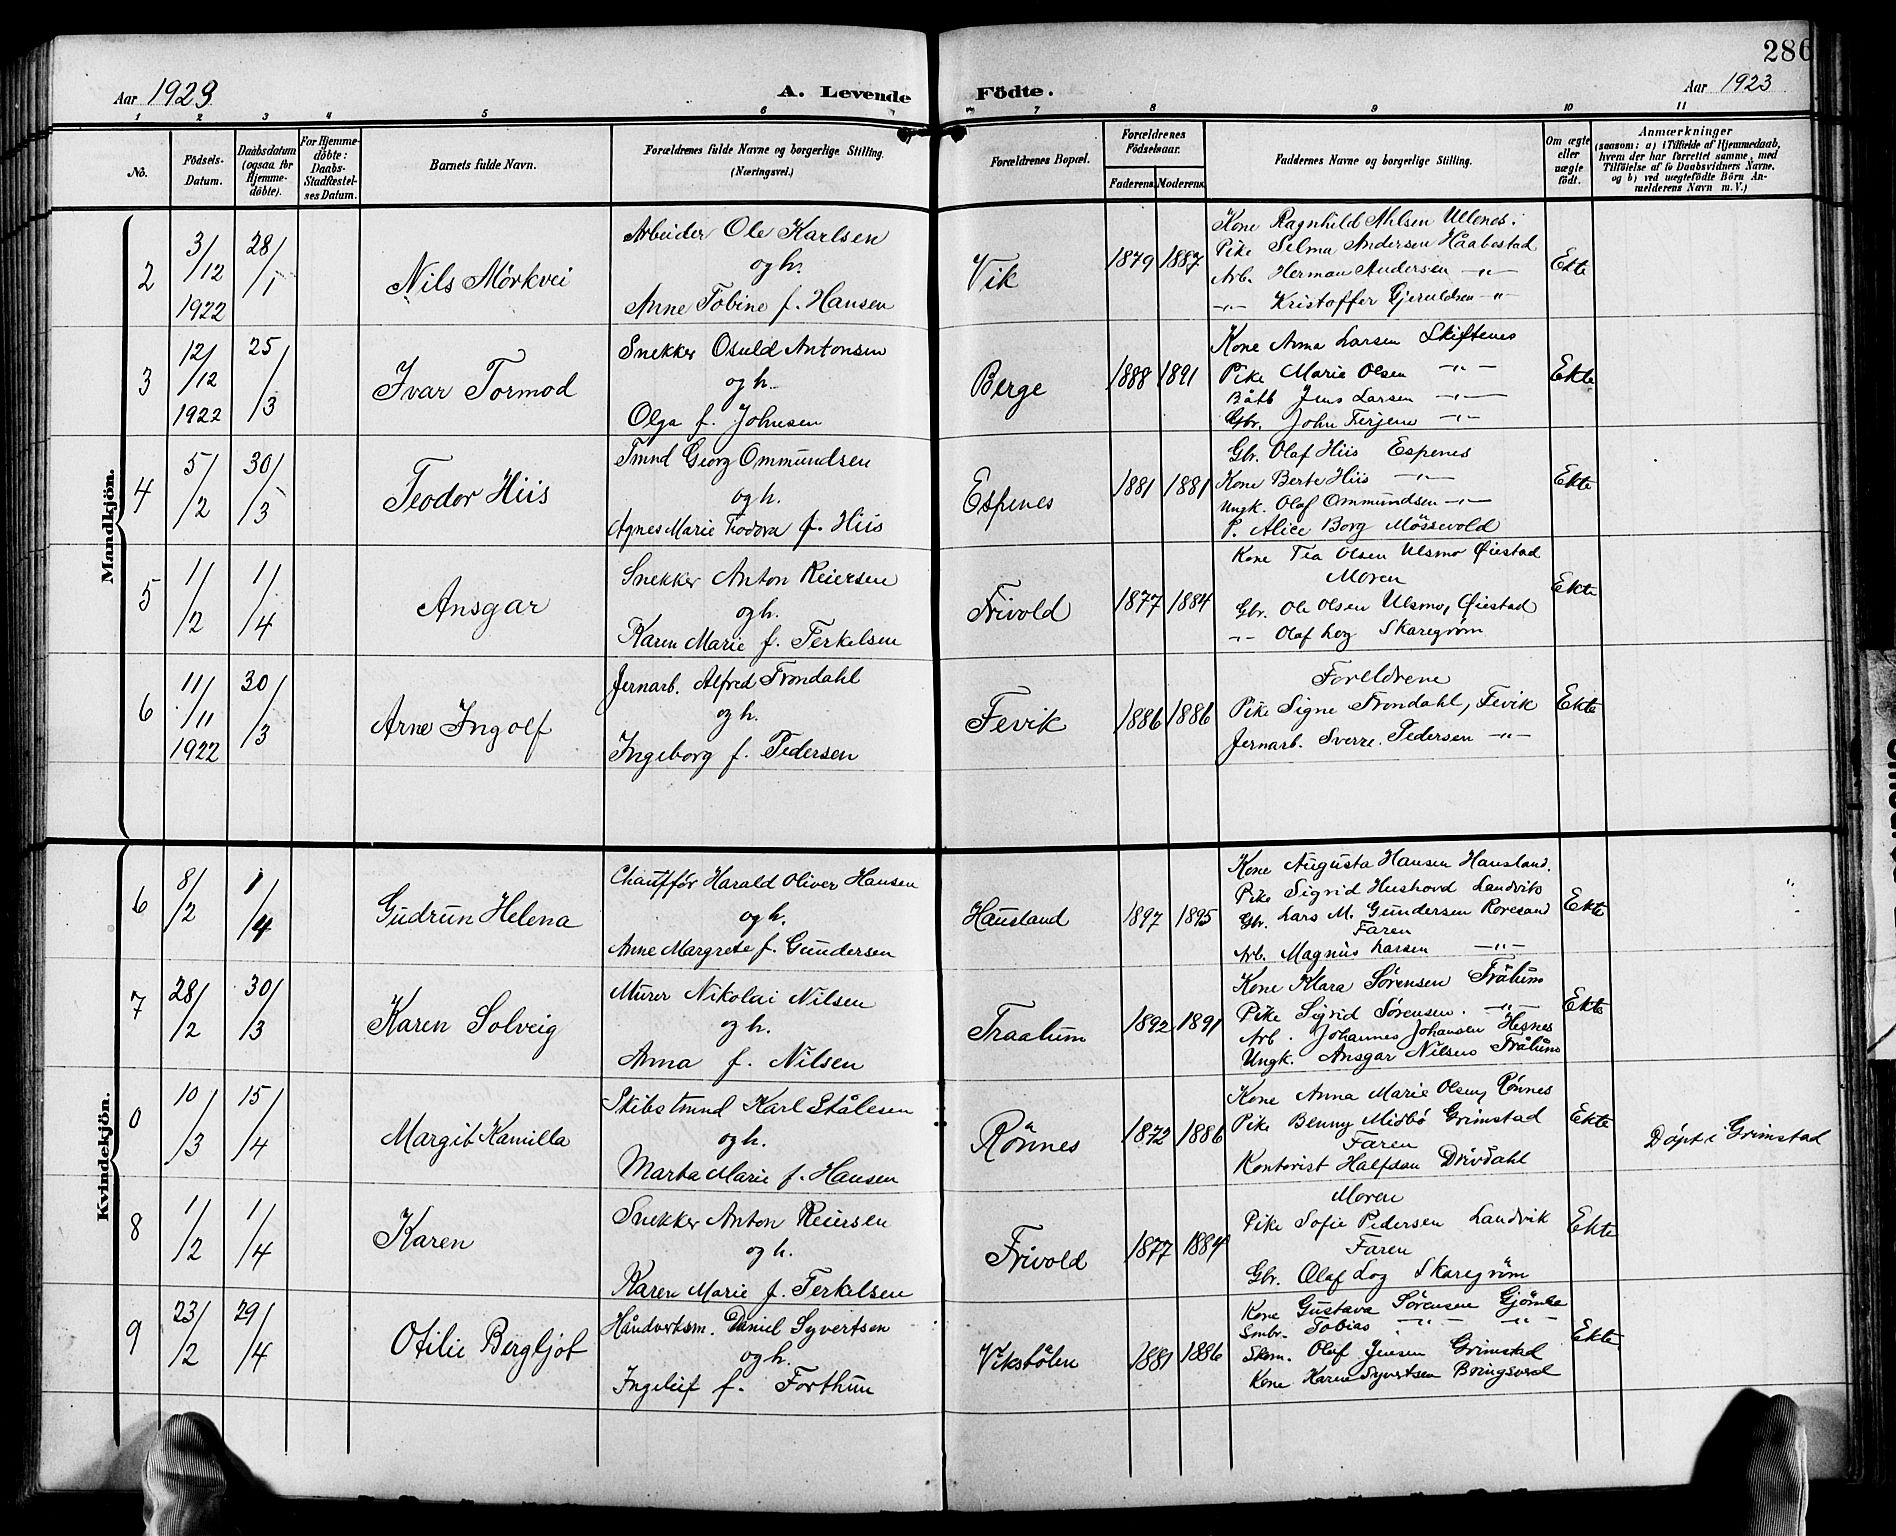 286
Aar 1923
A. Levende Födte.
Aar 1923
1 2 3 4 5 6 7 8 9 10 11
No.
Födsels-
Datum.
Daabsdatum
(ogsaa for
Hjemme-
döbte).
For Hjemme-
döbte:
Daabs-
Stadfæstel-
ses Datum.
Barnets fulde Navn.
Forældrenes fulde Navne og borgerlige Stilling.
(Næringsvei.)
Forældrenes Bopæl.
Forældrenes
Födselsaar.
Faderens. Moderens.
Faddernes Navne og borgerlige Stilling.
Om ægte
eller
uægte
födt.
Anmærkninger
(saasom: a) i Tilfælde af Hjemmedaab,
hvem der har forrettet samme, med
Tilföielse af to Daabsvidners Navne,
og b) ved uægtefödte Börn An-
melderens Navn m. V.)
Mandkjön.
2
3/12
1922
28/1
Nils Mörkvei
Arbeider Ole Karlsen
og h.
Anne Tobine f. Hansen
Vik
1879 1887
Kone Ragnhild Ahlsen Ullenes.
Pike Selma Andersen Håabestad
Arb. Herman Andersen -"-
-"- Kristoffer Gjeruldsen -"-
Ekte
3
12/12
1922
25/3
Ivar Tormod
Snekker Osuld Antonsen
og h.
Olga f. Johnsen
Berge
1888 1891
Kone Anna Larsen Skiftenes
Pike Marie Olsen -"-
Båtb Jens Larsen -"-
Gbr. John Terjesen -"-
Ekte
4
5/2
30/3
Teodor Hiis
Tmnd Georg Ommundsen
og h.
Agnes Marie Teodora f. Hiis
Espenes
1881 1881
Gbr. Olaf Hiis Espenes
Kone Berte Hiis -"-
Ungk. Olaf Ommundsen -"-
P. Alice Borg Mössevold
Ekte
5
1/2
1/4
Ansgar
Snekker Anton Reiersen
og h.
Karen Marie f. Terkelsen
Frivold
1877 1884
Kone Tea Olsen Ulsmo Øiestad
Moren
Gbr. Ole Olsen Ulsmo, Øiestad
-"- Olaf Log Skaregrøm
Ekte
6
11/11
1922
30/3
Arne Ingolf
Jernarb. Alfred Trondahl
og h.
Ingeborg f. Pedersen
Fevik
1886 1886
Foreldrene
Pike Signe Trondahl, Fevik
Jernarb. Sverre Pedersen -"-
Ekte
Kvindekjön.
6
8/2
1/4
Gudrun Helena
Chauffør Harald Oliver Hansen
og h.
Anne Margrete f. Gundersen
Hausland
1897 1895
Kone Augusta Hansen Hausland.
Pike Sigrid Hushovd Landvik
Gbr. Lars M. Gundersen Roresand
Faren
Arb. Magnus Larsen -"-
Ekte
7
28/2
30/3
Karen Solveig
Murer Nikolai Nilsen
og h.
Anna f. Nilsen
Traalum
1892 1891
Kone Klara Sørensen Trålum
Pike Sigrid Sørensen. -"-
Arb. Johannes Johansen Hesnes
Ungk. Ansgar Nilsen Trålum
Ekte
0
10/3
15/4
Margit Kamilla
Skibstmnd Karl Stålesen
og h.
Marta Marie f. Hansen
Rønnes
1872 1886
Kone Anna Marie Olsen, Rønnes
Pike Benny Midbö Grimstad
Faren
Kontorist Halfdan Drivdahl
Ekte
Døpt i Grimstad
8
1/2
1/4
Karen
Snekker Anton Reiersen
og h.
Karen Marie f. Terkelsen
Frivold
1877 1884
Moren
Pike Sofie Pedersen Landvik
Faren
Gbr. Olaf Log Skaregrøm
Ekte
9
23/2
29/4
Otilie Bergljot
Håndverksm. Daniel Syvertsen
og h.
Ingeleif f. Forthun
Vikstölen
1881 1886
Kone Gustava Sørensen Gjømle
Smbr. Tobias -"- -"-
Skom. Olaf Jensen Grimstad
Kone Karen Syvertsen Bringsverd
Ekte